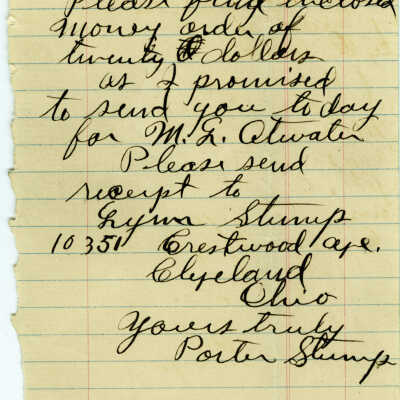 Please find enclosed
Money order of
twenty dollars
as I promised
to send you today
for M. L. Atwater
Please send
receipt to
Lynn Stump
10351 Crestwood ave.
Cleveland
Ohio
Yours truly
Porter Stump